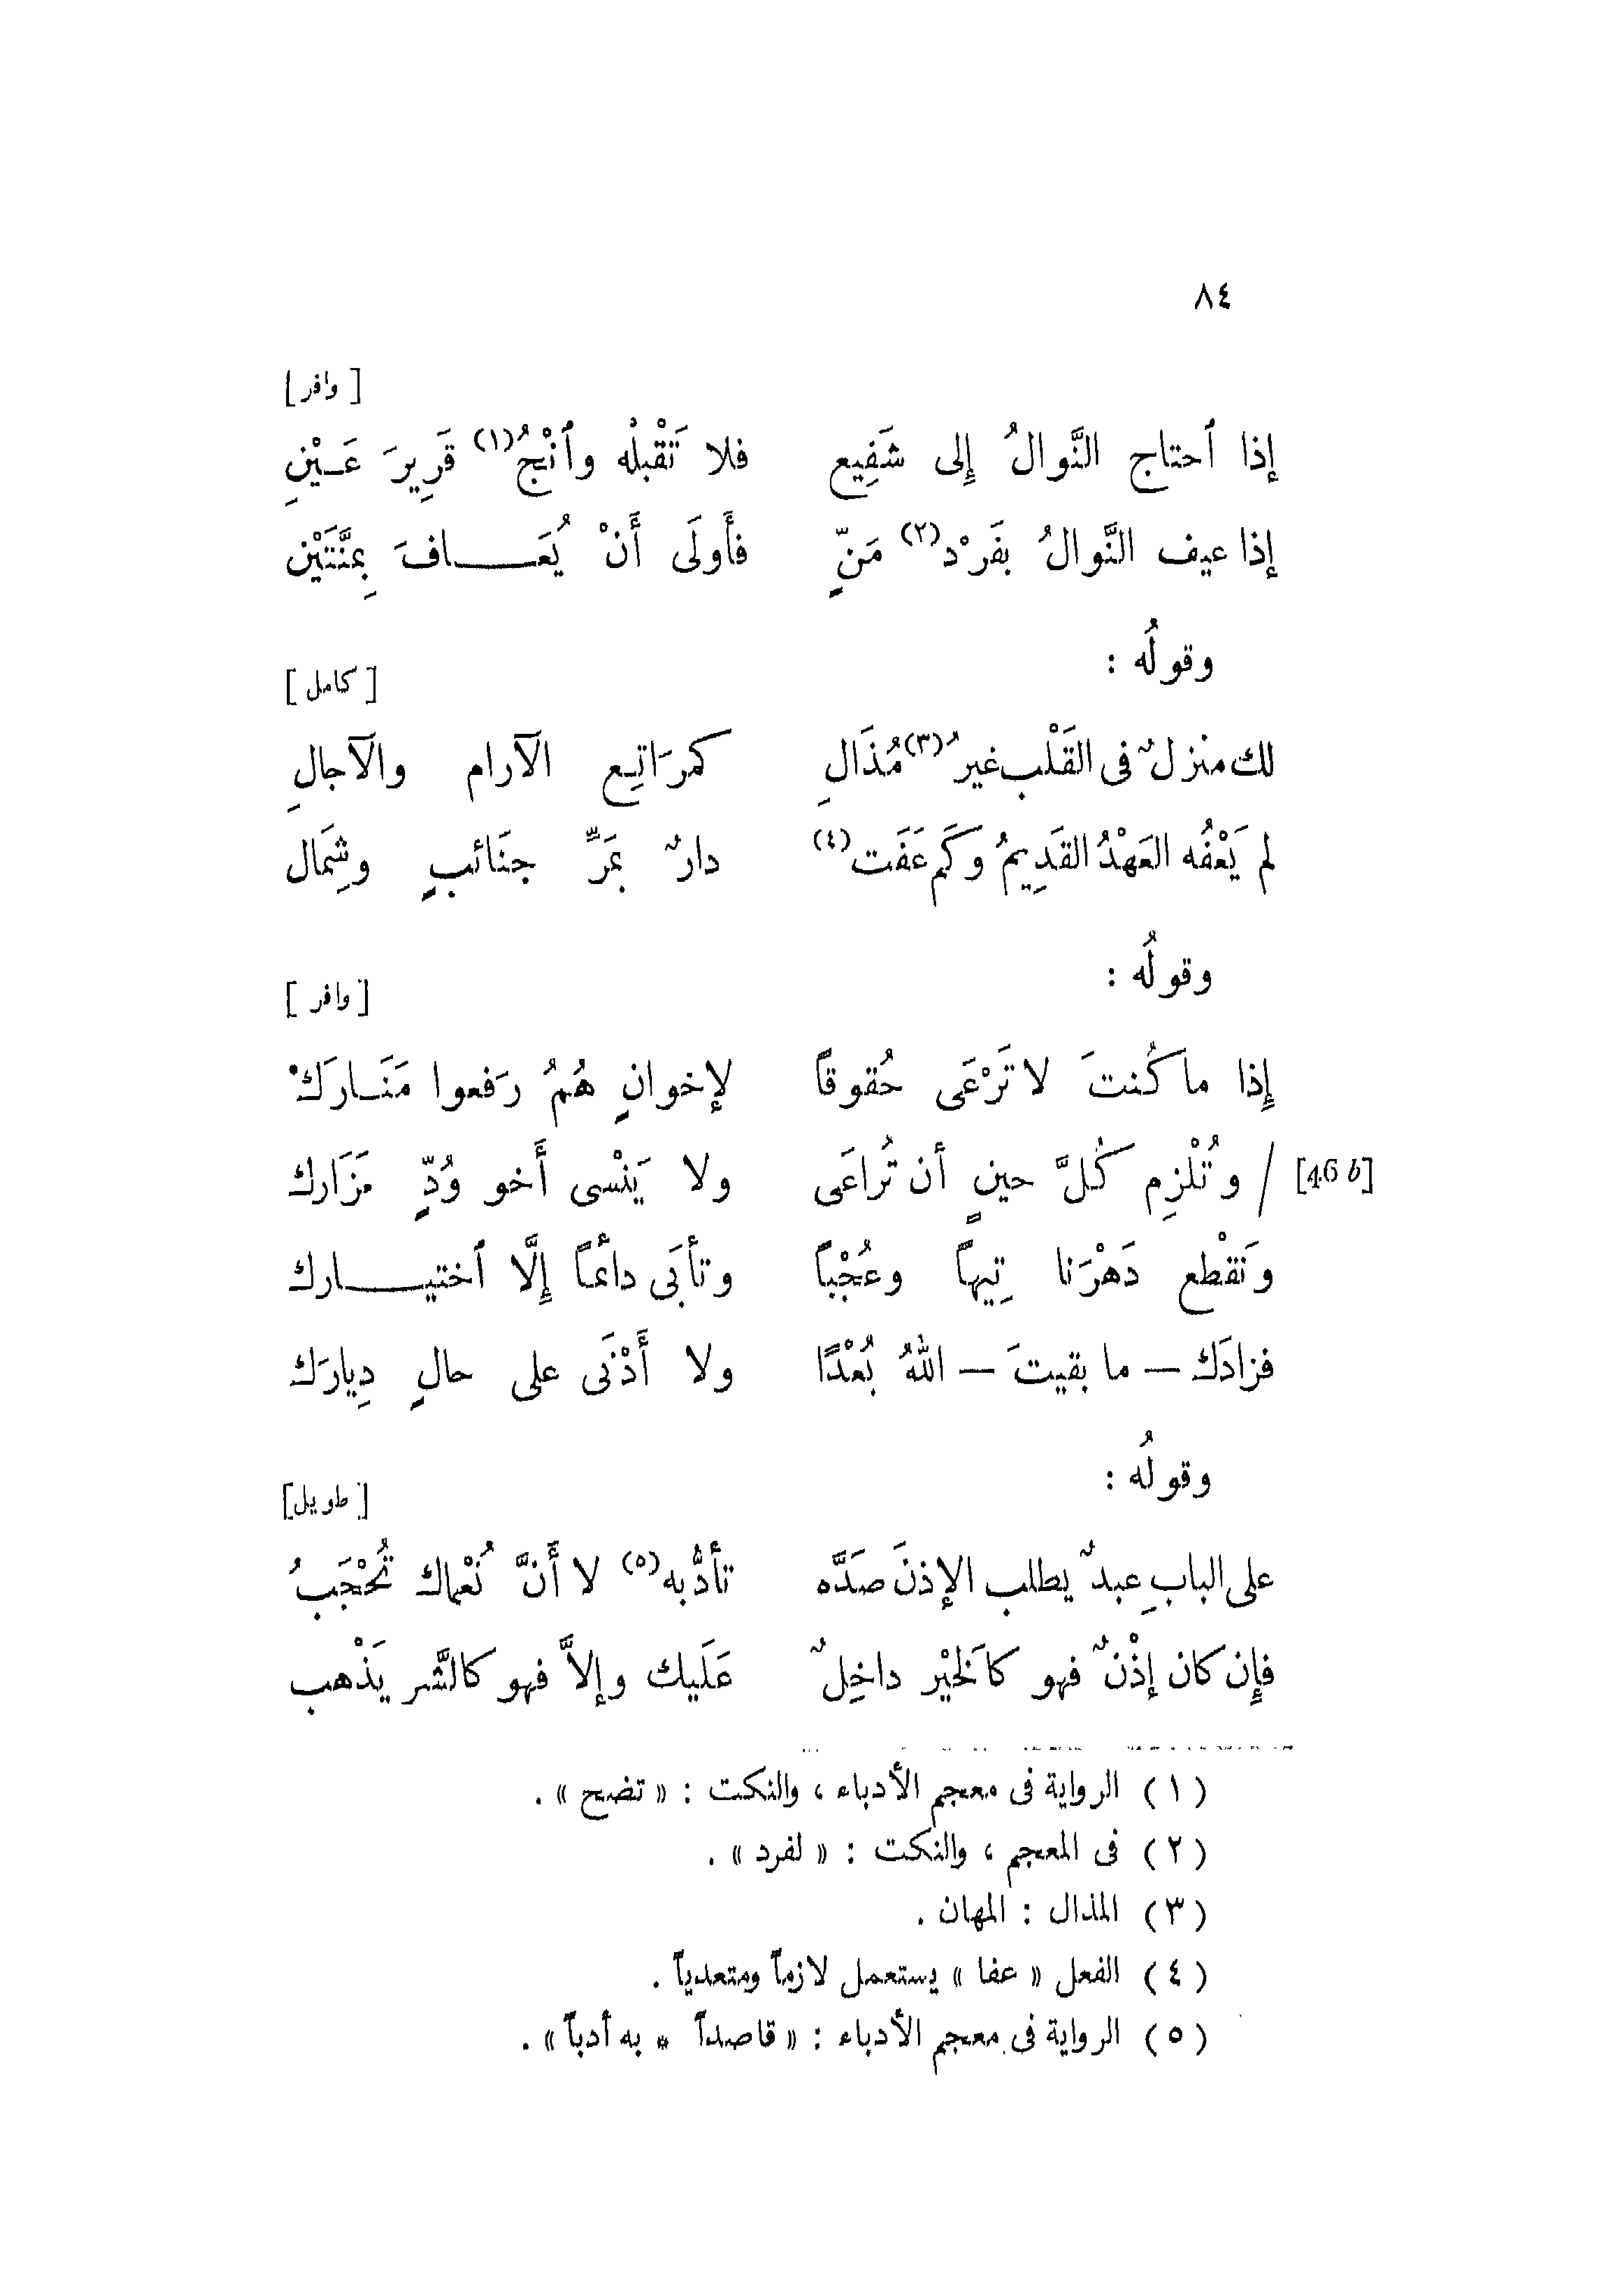 ٨٤
[ وافر ]
إذا ٱحتاج النَّوالُ إلى شَفِيع فلا تَقْبلْه وٱنْجُ(١) قَرِيرَ عَـيْنِ
إذا عيف النَّوالُ بفَرْد(٢) مَنٍّ فأَولَى أَنْ يُعَـــافَ بِمنَّتَيْن
وقولُه :
[ كامل ]
لك منزلٌ فى القَلْب غيرُ(٣) مُذَالِ كمرَاتِع الآرام والآجالِ
لم يَعْفُه العَهْدُ القَدِيمُ وكَم عَفَت(٤) دارٌ بمَرِّ جنَائبٍ وشِمَال
وقولُه :
[ وافر ]
إِذا ما كُنتَ لا تَرْعَى حُقوقاً لإخوانٍ هُمُ رَفعوا مَنَـارَكْ
[46 b] / وتُلْزِم كُلَّ حينٍ أن تُراعَى ولا يَنْسى أَخو وُدٍّ مَزَارك
وَتقْطع دَهْرَنا تِيهاً وعُجْباً وتأبَى دائماً إِلَّا ٱختيــارك
فزادَك — ما بقيتَ — اللهُ بُعْدًا ولا أَدْنَى على حالٍ دِيارَك
وقولُه :
[ طويل ]
على البابِ عبدٌ يطلب الإذنَ صَدَّه تأدُّبه(٥) لا أَنَّ نُعْماك تُحْجَبُ
فإِن كان إذْنٌ فهو كالخَيْر داخِلٌ عَلَيك وإلاَّ فهو كالشَّر يَذْهب
( ١ ) الرواية فى معجم الأدباء ، والنكت : « تضح » .
( ٢ ) فى المعجم ، والنكت : « لفرد » .
( ٣ ) المذال : المهان .
( ٤ ) الفعل « عفا » يستعمل لازماً ومتعدياً .
( ٥ ) الرواية فى معجم الأدباء : « قاصداً * به أدباً » .